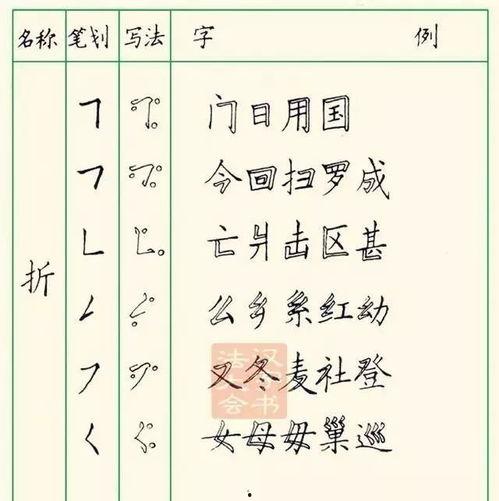 名称 笔划 写法 字 例
折
门日用国
今回扫罗成
亡爿击区甚
么乡系红幼
又冬麦社登
女母毋巢巡